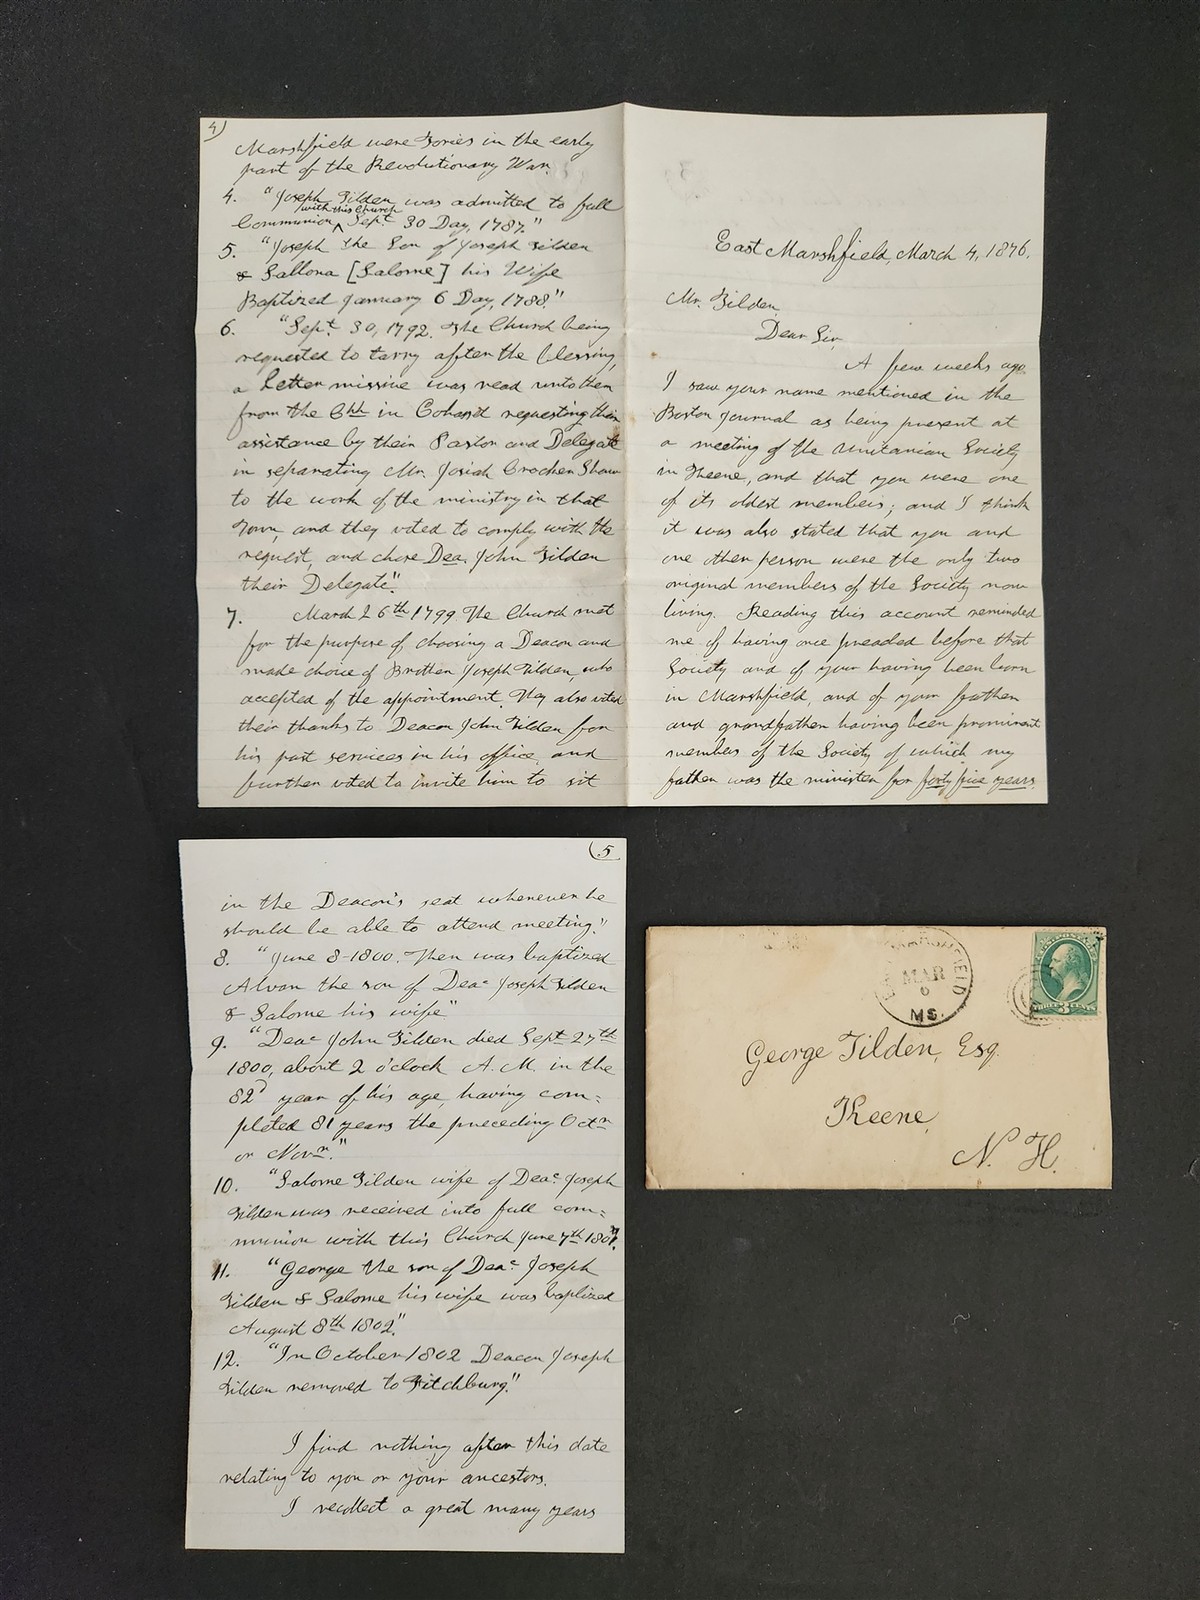 4)
Marshfield were Tories in the early
part of the Revolutionary War.
4. "Joseph Tilden was admitted to full
with this Church
Communion ^ Sept. 30 Day, 1787."
5. "Joseph the Son of Joseph Tilden
& Sallona [Salome] his Wife
Baptized January 6 Day, 1788"
6. "Sept. 30, 1792. The Church being
requested to tarry after the blessing,
a Letter missive was read unto them
from the Chh in Cohasst requesting their
assistance by their Pastor and Delegate
in separating Mr. Josiah Crocker Shaw
to the work of the ministry in that
Town, and they voted to comply with the
request, and chose Dea. John Tilden
their Delegate".
7. March 26th 1799 The Church met
for the purpose of choosing a Deacon and
made choice of Brother Joseph Tilden who
accepted of the appointment. They also voted
their thanks to Deacon John Tilden for
his past services in his office, and
further voted to invite him to sit
East Marshfield, March 4, 1876.
Mr. Tilden,
Dear Sir,
A few weeks ago
I saw your name mentioned in the
Boston Journal as being present at
a meeting of the Unitarian Society
in Keene, and that you were one
of its oldest members; and I think
it was also stated that you and
one other person were the only two
original members of the Society now
living. Reading this account reminded
me of having once preached before that
Society and of your having been born
in Marshfield, and of your father
and grandfather having been prominent
members of the Society of which my
father was the minister for forty five years.
5
in the Deacon's seat whenever he
should be able to attend meeting."
8. "June 8-1800. Then was baptized
Alvan the son of Deac Joseph Tilden
& Salome his wife"
9. "Deac John Tilden died Sept 27th
1800, about 2 o'clock A.M. in the
82d year of his age, having com=
pleted 81 years the preceding Octr
or Novr."
10. "Salome Tilden wife of Deac Joseph
Tilden was received into full com=
munion with this Church June 7th
11. "George the son of Deac Joseph
Tilden & Salome his wife was baptized
August 8th 1802."
12. "In October 1802 Deacon Joseph
Tilden removed to Fitchburg."
I find nothing after this date
relating to you or your ancestors.
I recollect a great many years
EAST MARSHFIELD
MAR
6
MS.
THREE CENTS
3
George Tilden, Esq.
Keene,
N. H.